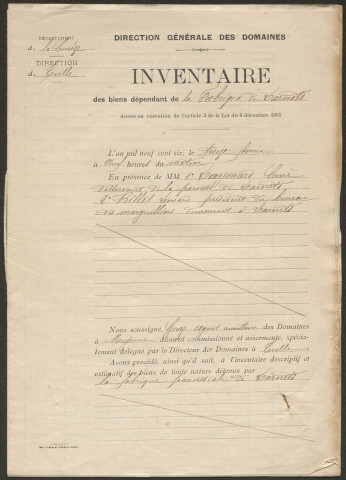 DÉPARTEMENT
de la Corrèze
DIRECTION
de Tulle
DIRECTION GÉNÉRALE DES DOMAINES
INVENTAIRE
des biens dépendant de la Fabrique de
dressé en exécution de l'article 3 de la Loi du 9 décembre 1905
L'an mil neuf cent six, le
à neuf heures du matin
En présence de MM 1° Curé
desservant de la paroisse de
2° président du bureau
des marguilliers demeurant à
Nous soussigné, agent auxiliaire des Domaines
à dûment commissionné et assermenté, spécia-
lement délégué par le Directeur des Domaines à Tulle
Avons procédé, ainsi qu'il suit, à l'inventaire descriptif et
estimatif des biens de toute nature détenus par
la fabrique paroissiale de